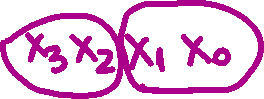 x₃ x₂ x₁ x₀